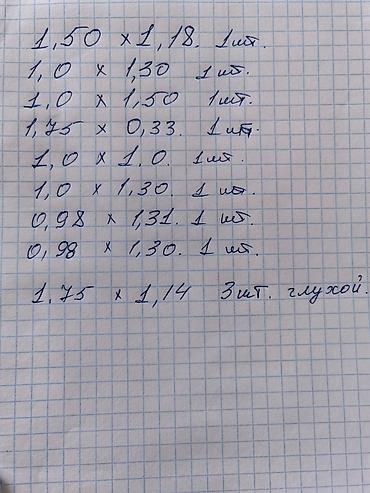 1,50 x 1,18. 1шт.
1,0 x 1,30 1шт.
1,0 x 1,50 1шт.
1,75 x 0,33. 1шт.
1,0 x 1.0. 1шт.
1,0 x 1,30. 1шт.
0,98 x 1,31. 1 шт.
0,98 x 1,30. 1 шт.
1.75 x 1,14 3шт. глухой.